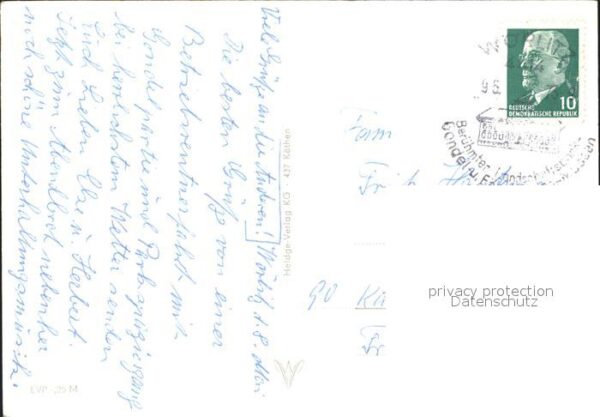 Viele Grüße an die Anderen!
Wörlitz, d. 8.
Die besten Grüße von einer
Betriebsrentnerfahrt mit
Gondelpartie und Parkspaziergang
bei herrlichstem Wetter senden
Euch Lieben Else u. Herbert.
Jetzt zum Abendbrot nebenher
noch schöne Unterhaltungsmusik.
EVP -,25 M
Heldge-Verlag KG · 437 Köthen
DEUTSCHE
DEMOKRATISCHE REPUBLIK
10
WÖRLITZ
Berühmter Landschaftspark
Gondel u.
Fam
90
privacy protection
Datenschutz